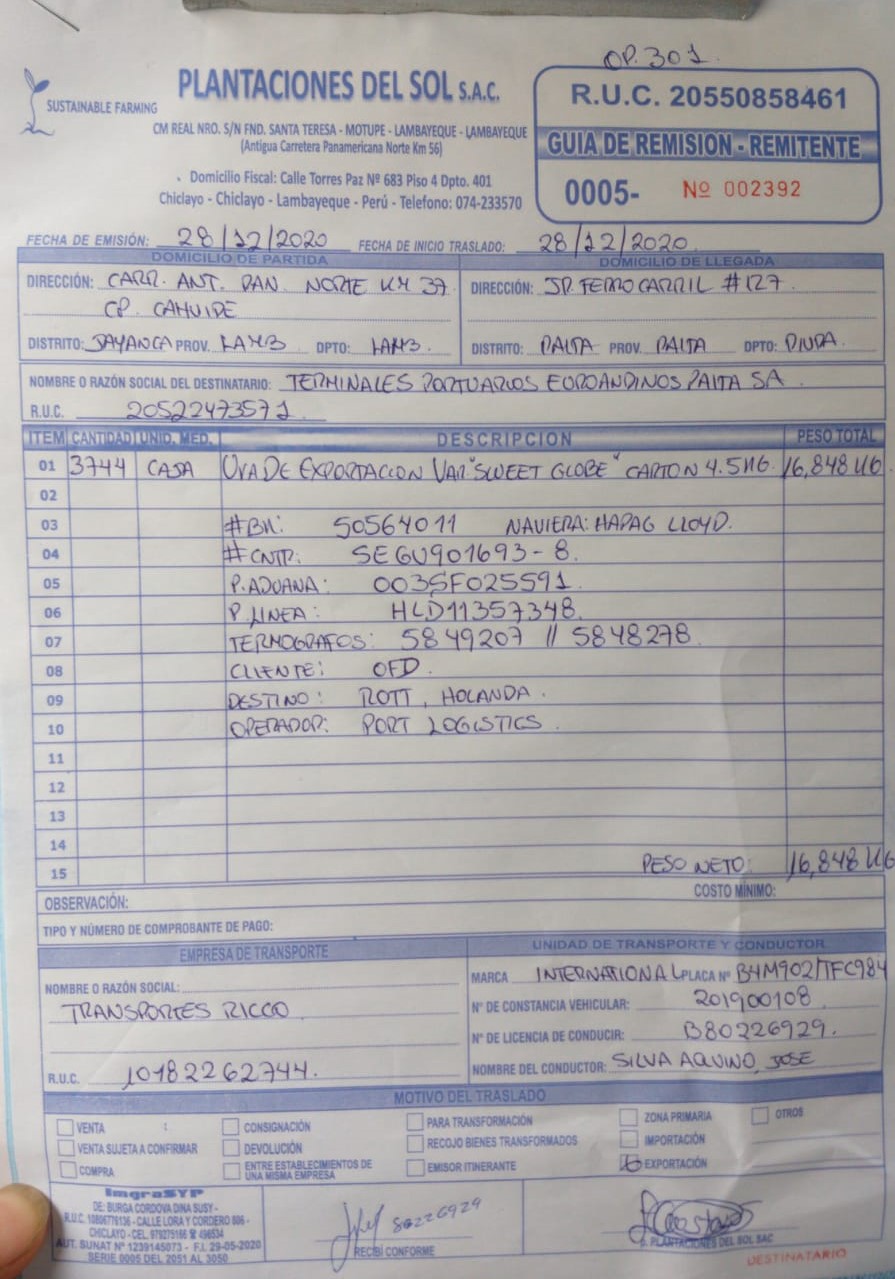 OP. 301
SUSTAINABLE FARMING
PLANTACIONES DEL SOL S.A.C.
CM REAL NRO. S/N FND. SANTA TERESA - MOTUPE - LAMBAYEQUE - LAMBAYEQUE
(Antigua Carretera Panamericana Norte Km 56)
Domicilio Fiscal: Calle Torres Paz Nº 683 Piso 4 Dpto. 401
Chiclayo - Chiclayo - Lambayeque - Perú - Telefono: 074-233570
R.U.C. 20550858461
GUIA DE REMISION - REMITENTE
0005- Nº 002392
FECHA DE EMISIÓN: 28/12/2020 FECHA DE INICIO TRASLADO: 28/12/2020
DOMICILIO DE PARTIDA
DIRECCIÓN: CARR. ANT. PAN. NORTE KM 37
CP. CAHUIDE
DISTRITO: JAYANCA PROV. LAMB DPTO: LAMB.
DOMICILIO DE LLEGADA
DIRECCIÓN: JR. FERROCARRIL #127.
DISTRITO: PAITA PROV. PAITA DPTO: PIURA.
NOMBRE O RAZÓN SOCIAL DEL DESTINATARIO: TERMINALES PORTUARIOS EUROANDINOS PAITA SA
R.U.C. 20522473571
ITEM CANTIDAD UNID. MED. DESCRIPCION PESO TOTAL
01 3744 CAJA UVA DE EXPORTACCION VAR "SWEET GLOBE" CARTON 4.5KG 16,848 KG
02
03 #BK: 50564011 NAVIERA: HAPAG LLOYD.
04 #CNTR: SEGU901693-8.
05 P.ADUANA: 003SF025591.
06 P.LINEA: HLD11357348.
07 TERMOGRAFOS: 5849207 // 5848278
08 CLIENTE: OFD.
09 DESTINO: ROTT, HOLANDA.
10 OPERADOR: PORT LOGISTICS.
11
12
13
14
15 PESO NETO: 16,848 KG
OBSERVACIÓN: COSTO MÍNIMO:
TIPO Y NÚMERO DE COMPROBANTE DE PAGO:
EMPRESA DE TRANSPORTE
NOMBRE O RAZÓN SOCIAL:
TRANSPORTES RICCO
R.U.C. 10182262744.
UNIDAD DE TRANSPORTE Y CONDUCTOR
MARCA INTERNATIONAL PLACA Nº B4M902/TFC984
Nº DE CONSTANCIA VEHICULAR: 201900108
Nº DE LICENCIA DE CONDUCIR: B80226929.
NOMBRE DEL CONDUCTOR: SILVA AQUINO, JOSE
MOTIVO DEL TRASLADO
VENTA CONSIGNACIÓN PARA TRANSFORMACIÓN ZONA PRIMARIA OTROS
VENTA SUJETA A CONFIRMAR DEVOLUCIÓN RECOJO BIENES TRANSFORMADOS IMPORTACIÓN
COMPRA ENTRE ESTABLECIMIENTOS DE UNA MISMA EMPRESA EMISOR ITINERANTE EXPORTACIÓN
ImgraSYP
DE: BURGA CORDOVA DINA SUSY -
R.U.C. 10806776136 - CALLE LORA Y CORDERO 806 -
CHICLAYO - CEL. 979275166 ☎ 496534
AUT. SUNAT Nº 1239145073 - F.I. 29-05-2020
SERIE 0005 DEL 2051 AL 3050
80226929
RECIBÍ CONFORME
P. PLANTACIONES DEL SOL SAC
DESTINATARIO